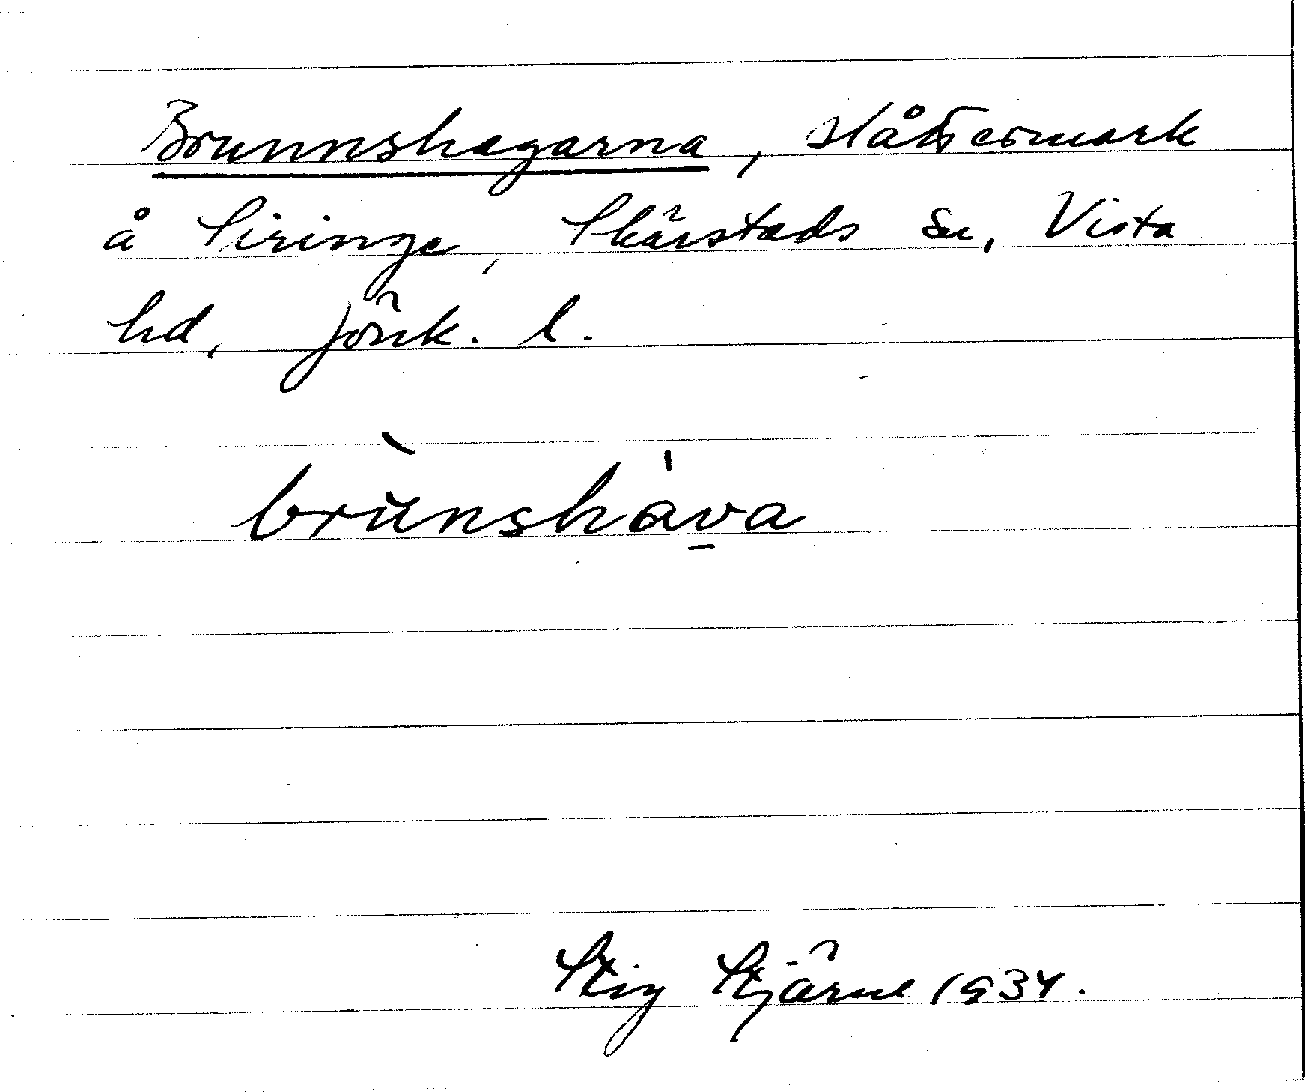 Brunnshagarna, slåttermark
å Siringe, Skärstads sn, Vista
hd, Jönk. l.
brùnshàva
Stig Stjärne 1934.